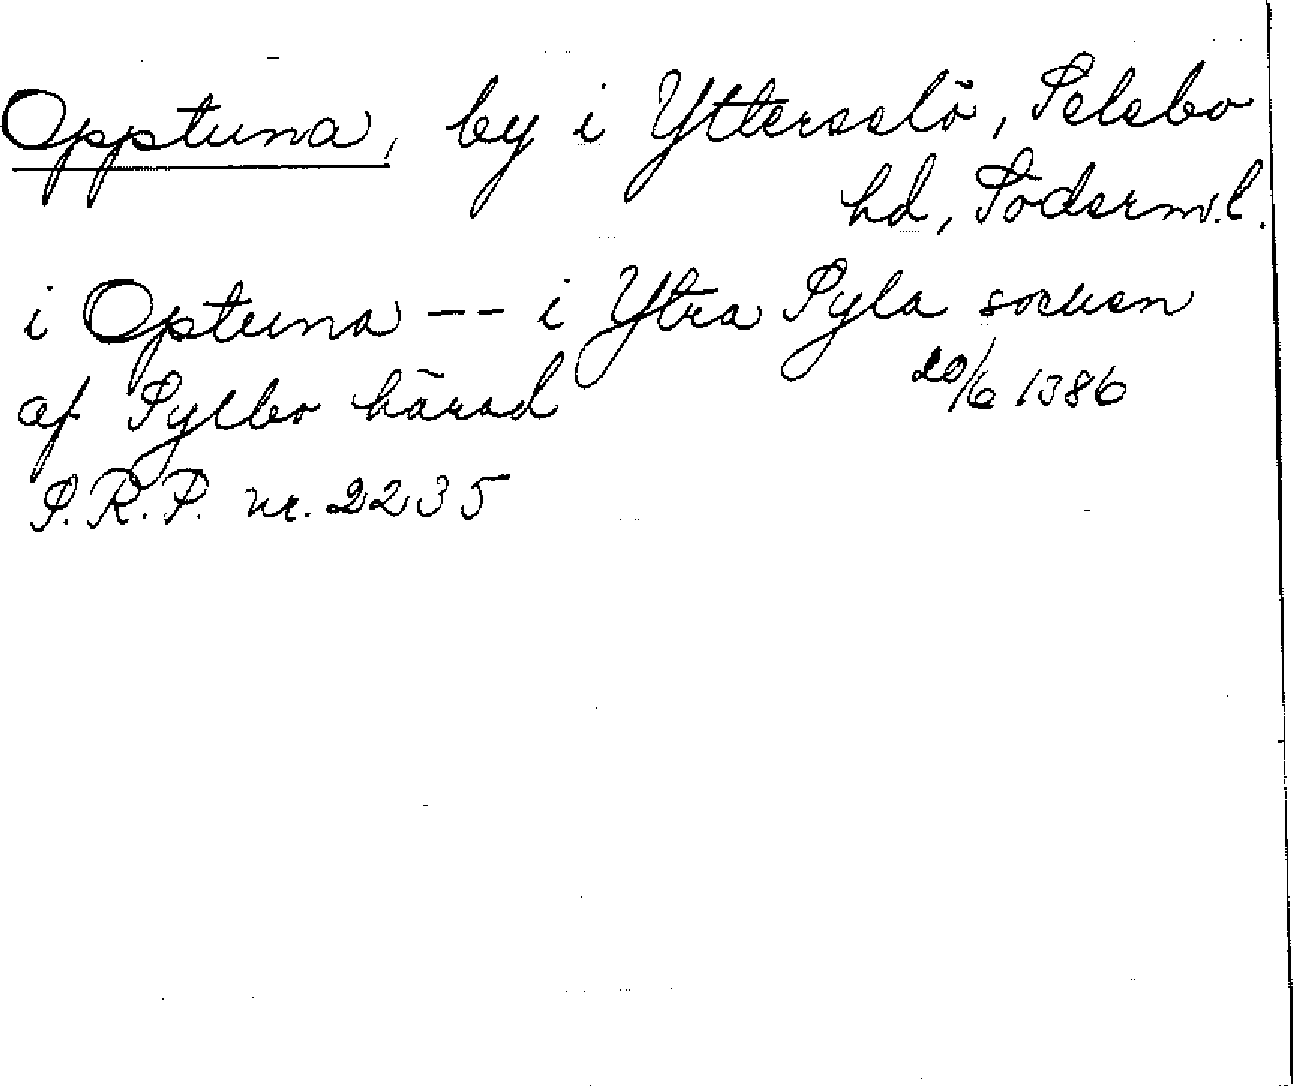 Opptuna, by i Ytterselö, Selebo
hd, Söderm.l.
i Optuna -- i Ytra Syla socken
af Sylbo härad 20/6 1386
S.R.P. nr. 2235